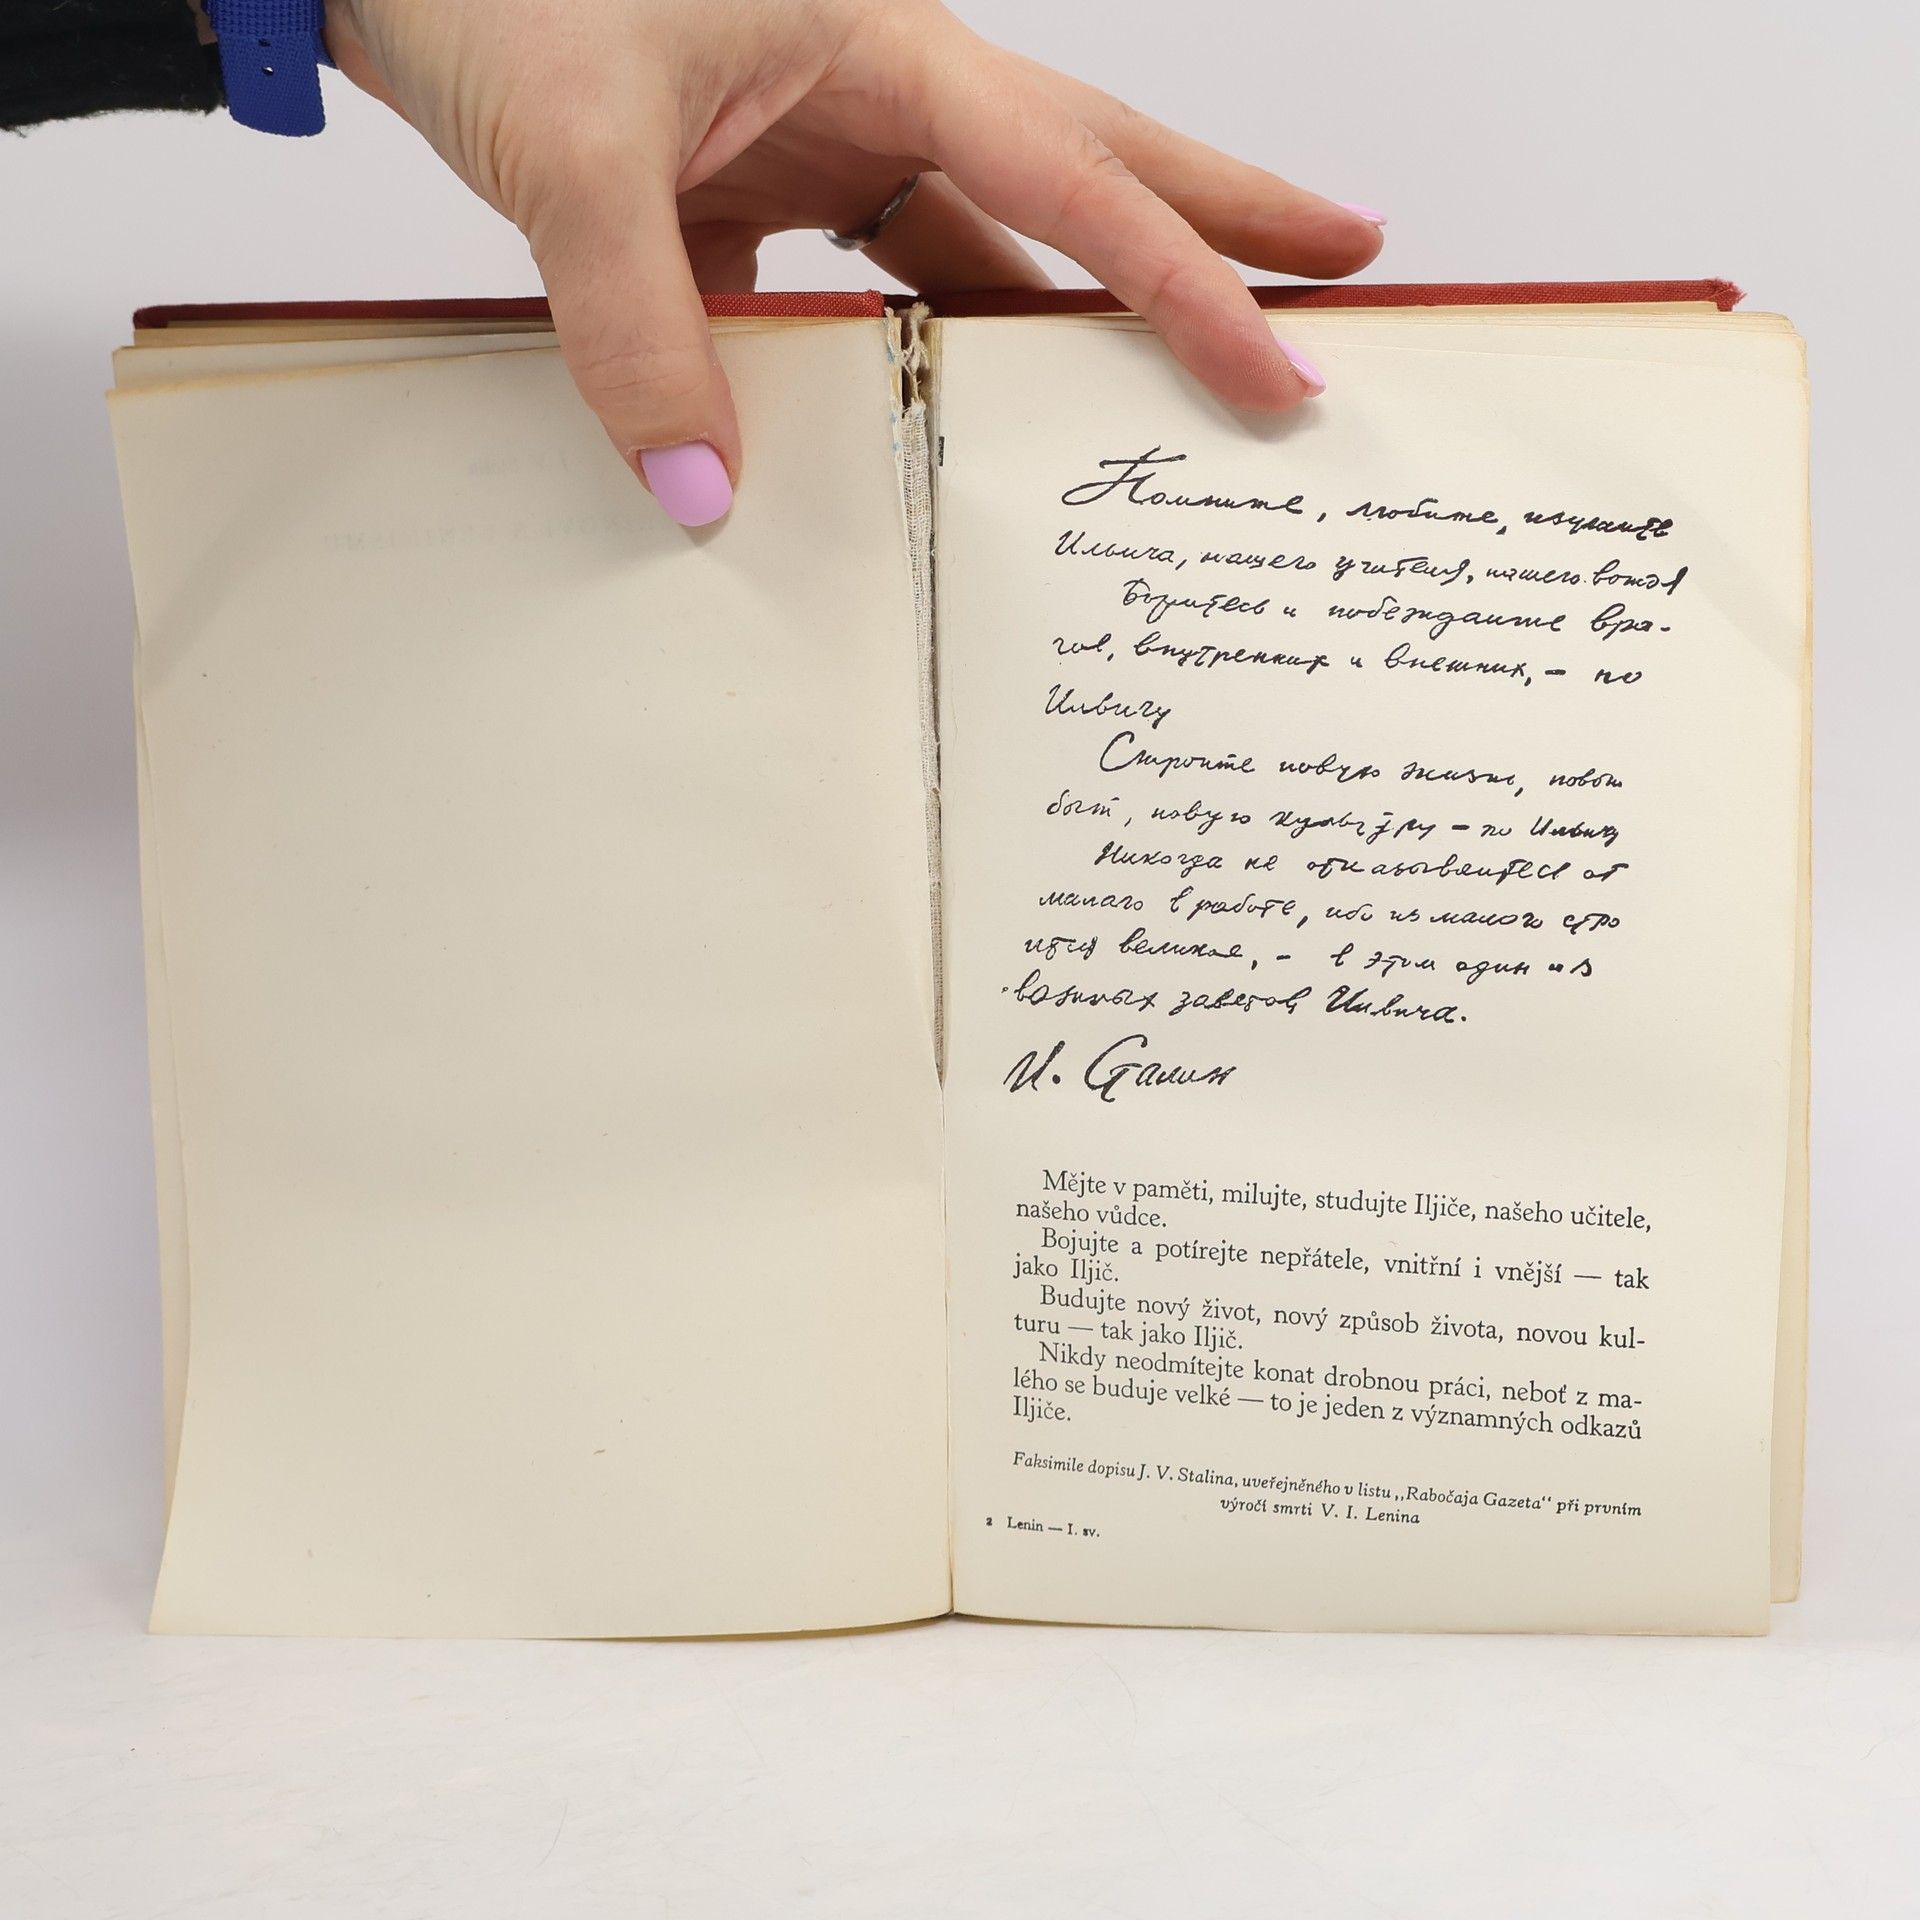 Помните, любите, изучайте
Ильича, нашего учителя, нашего вождя
Боритесь и побеждайте вра-
гов, внутренних и внешних, – по
Ильичу
Стройте новую жизнь, новый
быт, новую культуру – по Ильичу
Никогда не отказывайтесь от
малого в работе, ибо из малого стро
ится великое, – в этом один из
важных заветов Ильича.
И. Сталин
Mějte v paměti, milujte, studujte Iljiče, našeho učitele,
našeho vůdce.
Bojujte a potírejte nepřátele, vnitřní i vnější — tak
jako Iljič.
Budujte nový život, nový způsob života, novou kul-
turu — tak jako Iljič.
Nikdy neodmítejte konat drobnou práci, neboť z ma-
lého se buduje velké — to je jeden z významných odkazů
Iljiče.
Faksimile dopisu J. V. Stalina, uveřejněného v listu „Rabočaja Gazeta“ při prvním
výročí smrti V. I. Lenina
2 Lenin — I. sv.